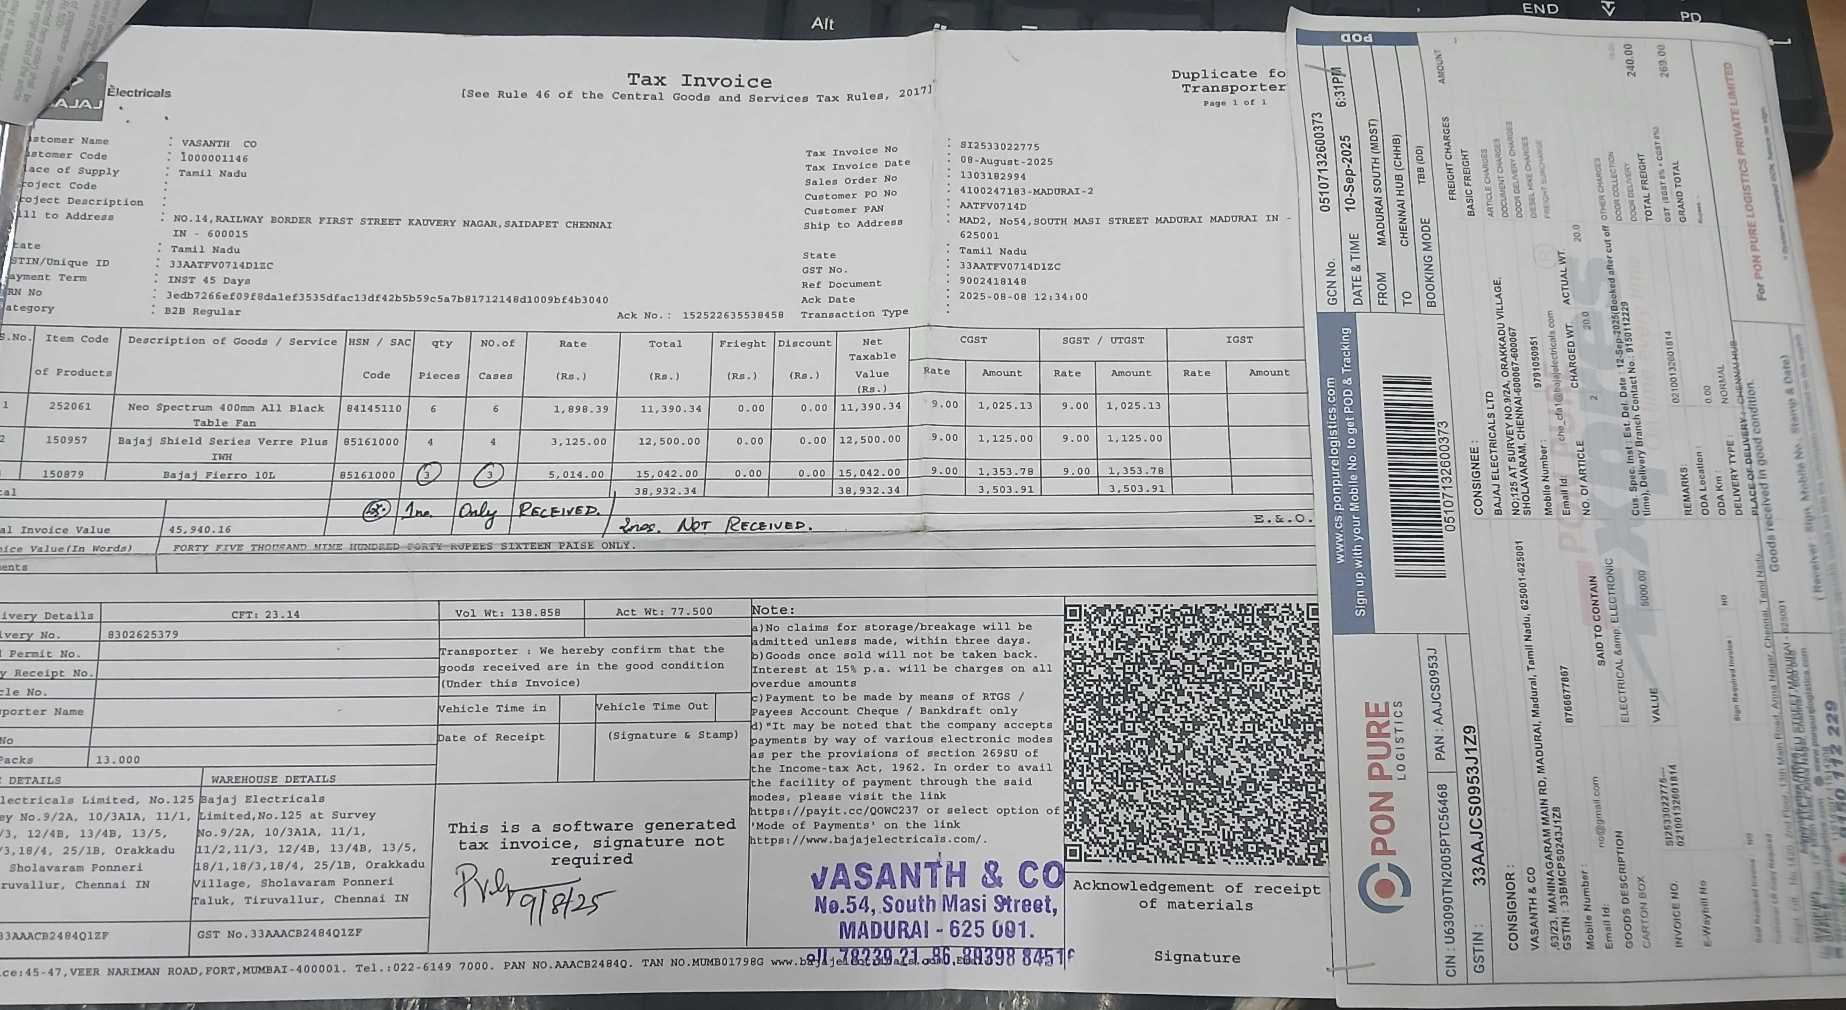 Alt
END
PD
BAJAJ
Electricals
Tax Invoice
[See Rule 46 of the Central Goods and Services Tax Rules, 2017]
Duplicate fo
Transporter
Page 1 of 1
stomer Name : VASANTH CO
stomer Code : 1000001146
lace of Supply : Tamil Nadu
roject Code :
roject Description :
ill to Address : NO.14,RAILWAY BORDER FIRST STREET KAUVERY NAGAR,SAIDAPET CHENNAI
IN - 600015
tate : Tamil Nadu
STIN/Unique ID : 33AATFV0714D1ZC
ayment Term : INST 45 Days
RN No : 3edb7266ef09f8da1ef3535dfac13df42b5b59c5a7b81712148d1009bf4b3040
ategory : B2B Regular
Ack No.: 152522635538458
Tax Invoice No : SI2533022775
Tax Invoice Date : 08-August-2025
Sales Order No : 1303182994
Customer PO No : 4100247183-MADURAI-2
Customer PAN : AATFV0714D
Ship to Address : MAD2, No54,SOUTH MASI STREET MADURAI MADURAI IN -
625001
State : Tamil Nadu
GST No. : 33AATFV0714D1ZC
Ref Document : 9002418148
Ack Date : 2025-08-08 12:34:00
Transaction Type :
S.No. Item Code of Products Description of Goods / Service HSN / SAC Code qty Pieces NO.of Cases Rate (Rs.) Total (Rs.) Frieght (Rs.) Discount (Rs.) Net Taxable Value (Rs.) CGST Rate Amount SGST / UTGST Rate Amount IGST Rate Amount
1 252061 Neo Spectrum 400mm All Black 84145110 6 6 1,898.39 11,390.34 0.00 0.00 11,390.34 9.00 1,025.13 9.00 1,025.13
Table Fan
2 150957 Bajaj Shield Series Verre Plus 85161000 4 4 3,125.00 12,500.00 0.00 0.00 12,500.00 9.00 1,125.00 9.00 1,125.00
IWH
150879 Bajaj Fierro 10L 85161000 3 3 5,014.00 15,042.00 0.00 0.00 15,042.00 9.00 1,353.78 9.00 1,353.78
tal 38,932.34 38,932.34 3,503.91 3,503.91
1no. Only RECEIVED.
2nos. NOT RECEIVED.
E.&.O.
al Invoice Value 45,940.16
ice Value(In Words) FORTY FIVE THOUSAND NINE HUNDRED FORTY RUPEES SIXTEEN PAISE ONLY.
ents
ivery Details CFT: 23.14 Vol Wt: 138.858 Act Wt: 77.500
ivery No. 8302625379
Permit No.
y Receipt No.
cle No.
sporter Name
No
Packs 13.000
Transporter : We hereby confirm that the
goods received are in the good condition
(Under this Invoice)
Vehicle Time in Vehicle Time Out
Date of Receipt (Signature & Stamp)
Note:
a)No claims for storage/breakage will be
admitted unless made, within three days.
b)Goods once sold will not be taken back.
Interest at 15% p.a. will be charges on all
overdue amounts
c)Payment to be made by means of RTGS /
Payees Account Cheque / Bankdraft only
d)"It may be noted that the company accepts
payments by way of various electronic modes
as per the provisions of section 269SU of
the Income-tax Act, 1962. In order to avail
the facility of payment through the said
modes, please visit the link
https://payit.cc/QOWC237 or select option of
'Mode of Payments' on the link
https://www.bajajelectricals.com/.
DETAILS
lectricals Limited, No.125
ey No.9/2A, 10/3A1A, 11/1,
/3, 12/4B, 13/4B, 13/5,
/3,18/4, 25/1B, Orakkadu
Sholavaram Ponneri
ruvallur, Chennai IN
33AAACB2484Q1ZF
WAREHOUSE DETAILS
Bajaj Electricals
Limited,No.125 at Survey
No.9/2A, 10/3A1A, 11/1,
11/2,11/3, 12/4B, 13/4B, 13/5,
18/1,18/3,18/4, 25/1B, Orakadu
Village, Sholavaram Ponneri
Taluk, Tiruvallur, Chennai IN
GST No.33AAACB2484Q1ZF
This is a software generated
tax invoice, signature not
required
9/8/25
VASANTH & CO
No.54, South Masi Street,
MADURAI - 625 001.
Acknowledgement of receipt
of materials
Signature
ce:45-47,VEER NARIMAN ROAD,FORT,MUMBAI-400001. Tel.:022-6149 7000. PAN NO.AAACB2484Q. TAN NO.MUMB01798G
POD
www.cs.ponpurelogistics.com
Sign up with your Mobile No. to get POD & Tracking
PON PURE
LOGISTICS
GCN No. 05107132600373
DATE & TIME 10-Sep-2025 6:31PM
FROM MADURAI SOUTH (MDST)
TO CHENNAI HUB (CHHB)
BOOKING MODE TBB (DD)
0510713260373
CIN : U63090TN2005PTC56468 PAN : AAJCS0953J
GSTIN : 33AAJCS0953J1Z9
CONSIGNOR :
VASANTH & CO
63/23, MANINAGARAM MAIN RD, MADURAI, Madurai, Tamil Nadu, 625001-625001
GSTIN : 33BMCPS0243J1Z8
Mobile Number : 8766677867
Email Id: no@gmail.com
CONSIGNEE :
BAJAJ ELECTRICALS LTD
NO;125 AT SURVEY NO.9/2A, ORAKKADU VILLAGE,
SHOLAVARAM, CHENNAI-600067-600067
Mobile Number : 9791050951
GOODS DESCRIPTION SAID TO CONTAIN NO. OF ARTICLE CHARGED WT. ACTUAL WT.
CARTON BOX ELECTRICAL &amp; ELECTRONIC 2 20.0 20.0
VALUE 5000.00
INVOICE NO. SI2533022775---
02100132601814
E-Waybill No
REMARKS: 02100132601814
ODA Location :
ODA Km : 0.00
DELIVERY TYPE : NORMAL
FREIGHT CHARGES AMOUNT
BASIC FREIGHT
ARTICLE CHARGES
DOCUMENT CHARGES
DOOR DELIVERY CHARGES
DIESEL HIKE CHARGES
FREIGHT SURCHARGE
OTHER CHARGES
DOOR COLLECTION
DOOR DELIVERY
TOTAL FREIGHT 240.00
GRAND TOTAL 269.00
For PON PURE LOGISTICS PRIVATE LIMITED
Goods received in good condition.